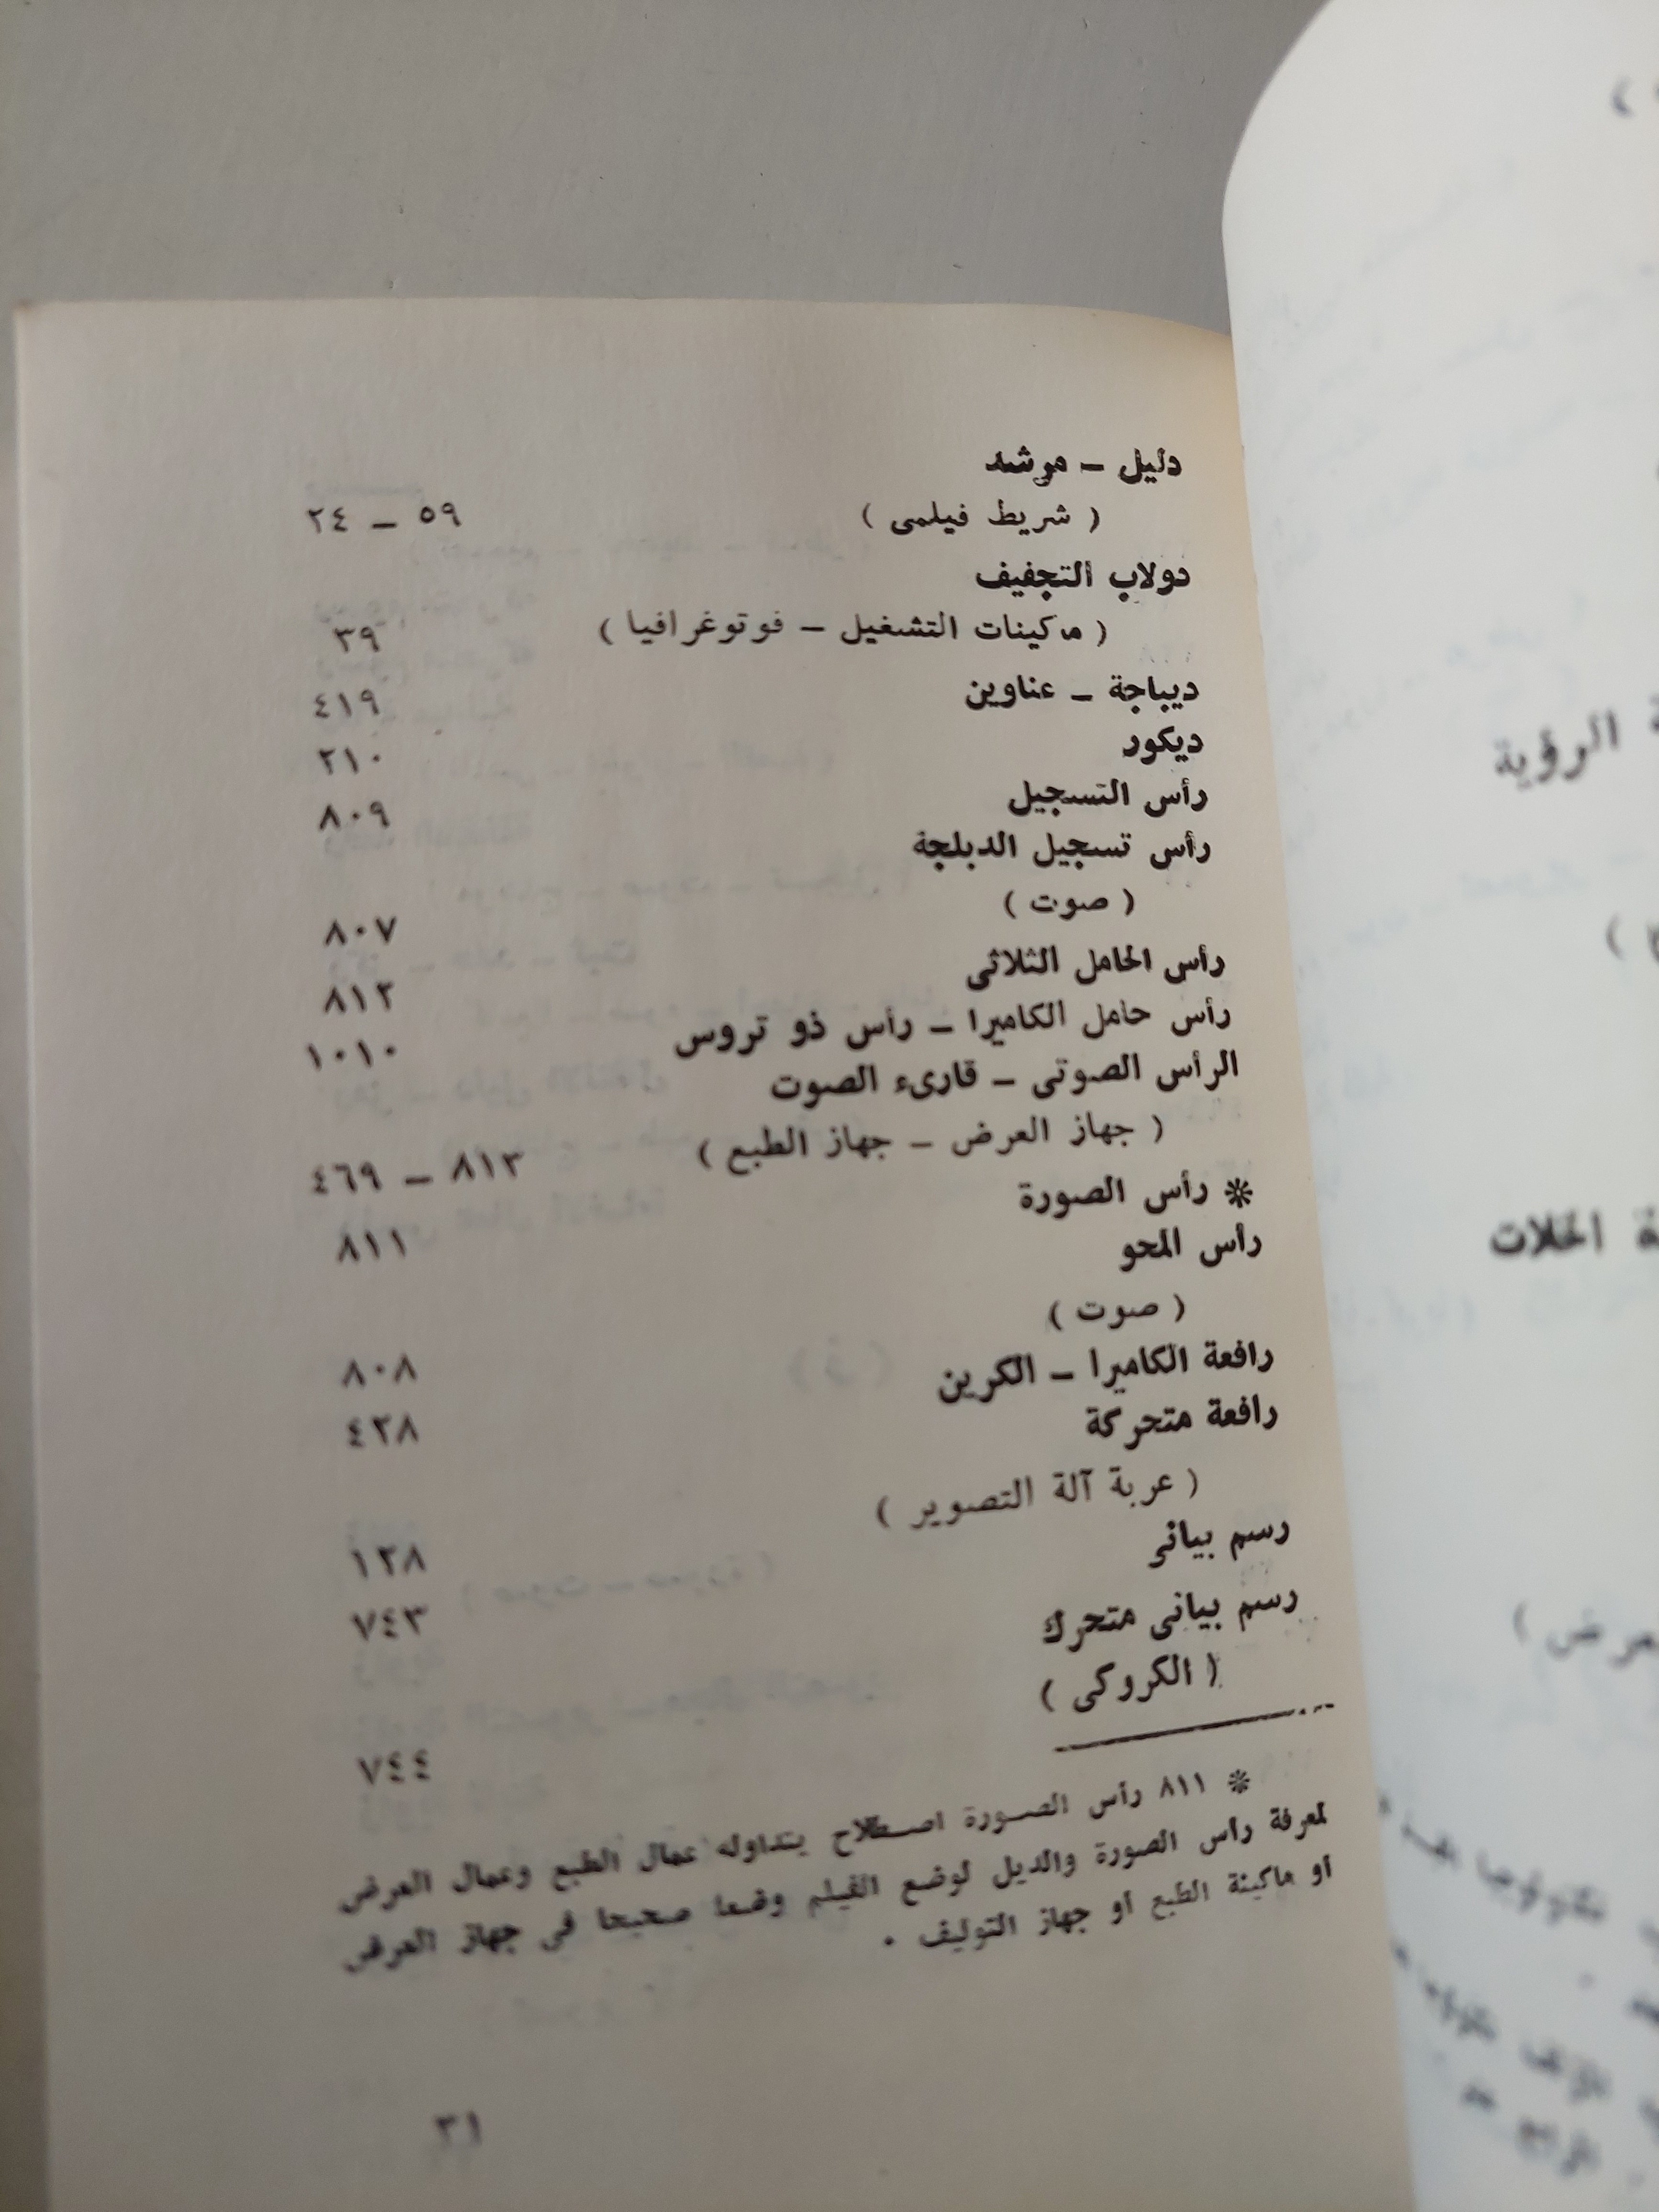 دليل – مرشد
( شريط فيلمى ) ٥٩ – ٢٤
دولاب التجفيف
( ماكينات التشغيل – فوتوغرافيا ) ٣٩
ديباجة – عناوين ٤١٩
ديكور ٢١٠
رأس التسجيل ٨٠٩
رأس تسجيل الدبلجة
( صوت ) ٨٠٧
رأس الحامل الثلاثى ٨١٢
رأس حامل الكاميرا – رأس ذو تروس ١٠١٠
الرأس الصوتى – قارىء الصوت
( جهاز العرض – جهاز الطبع ) ٨١٣ – ٤٦٩
* رأس الصورة ٨١١
رأس المحو
( صوت ) ٨٠٨
رافعة الكاميرا – الكرين ٤٢٨
رافعة متحركة
( عربة آلة التصوير ) ١٢٨
رسم بيانى ٧٤٣
رسم بيانى متحرك
( الكروكى ) ٧٤٤
* ٨١١ رأس الصورة اصطلاح يتداوله عمال الطبع وعمال العرض
لمعرفة رأس الصورة والديل لوضع الفيلم وضعا صحيحا فى جهاز العرض
أو ماكينة الطبع أو جهاز التوليف .
٣١
الرؤية
ة الخلات